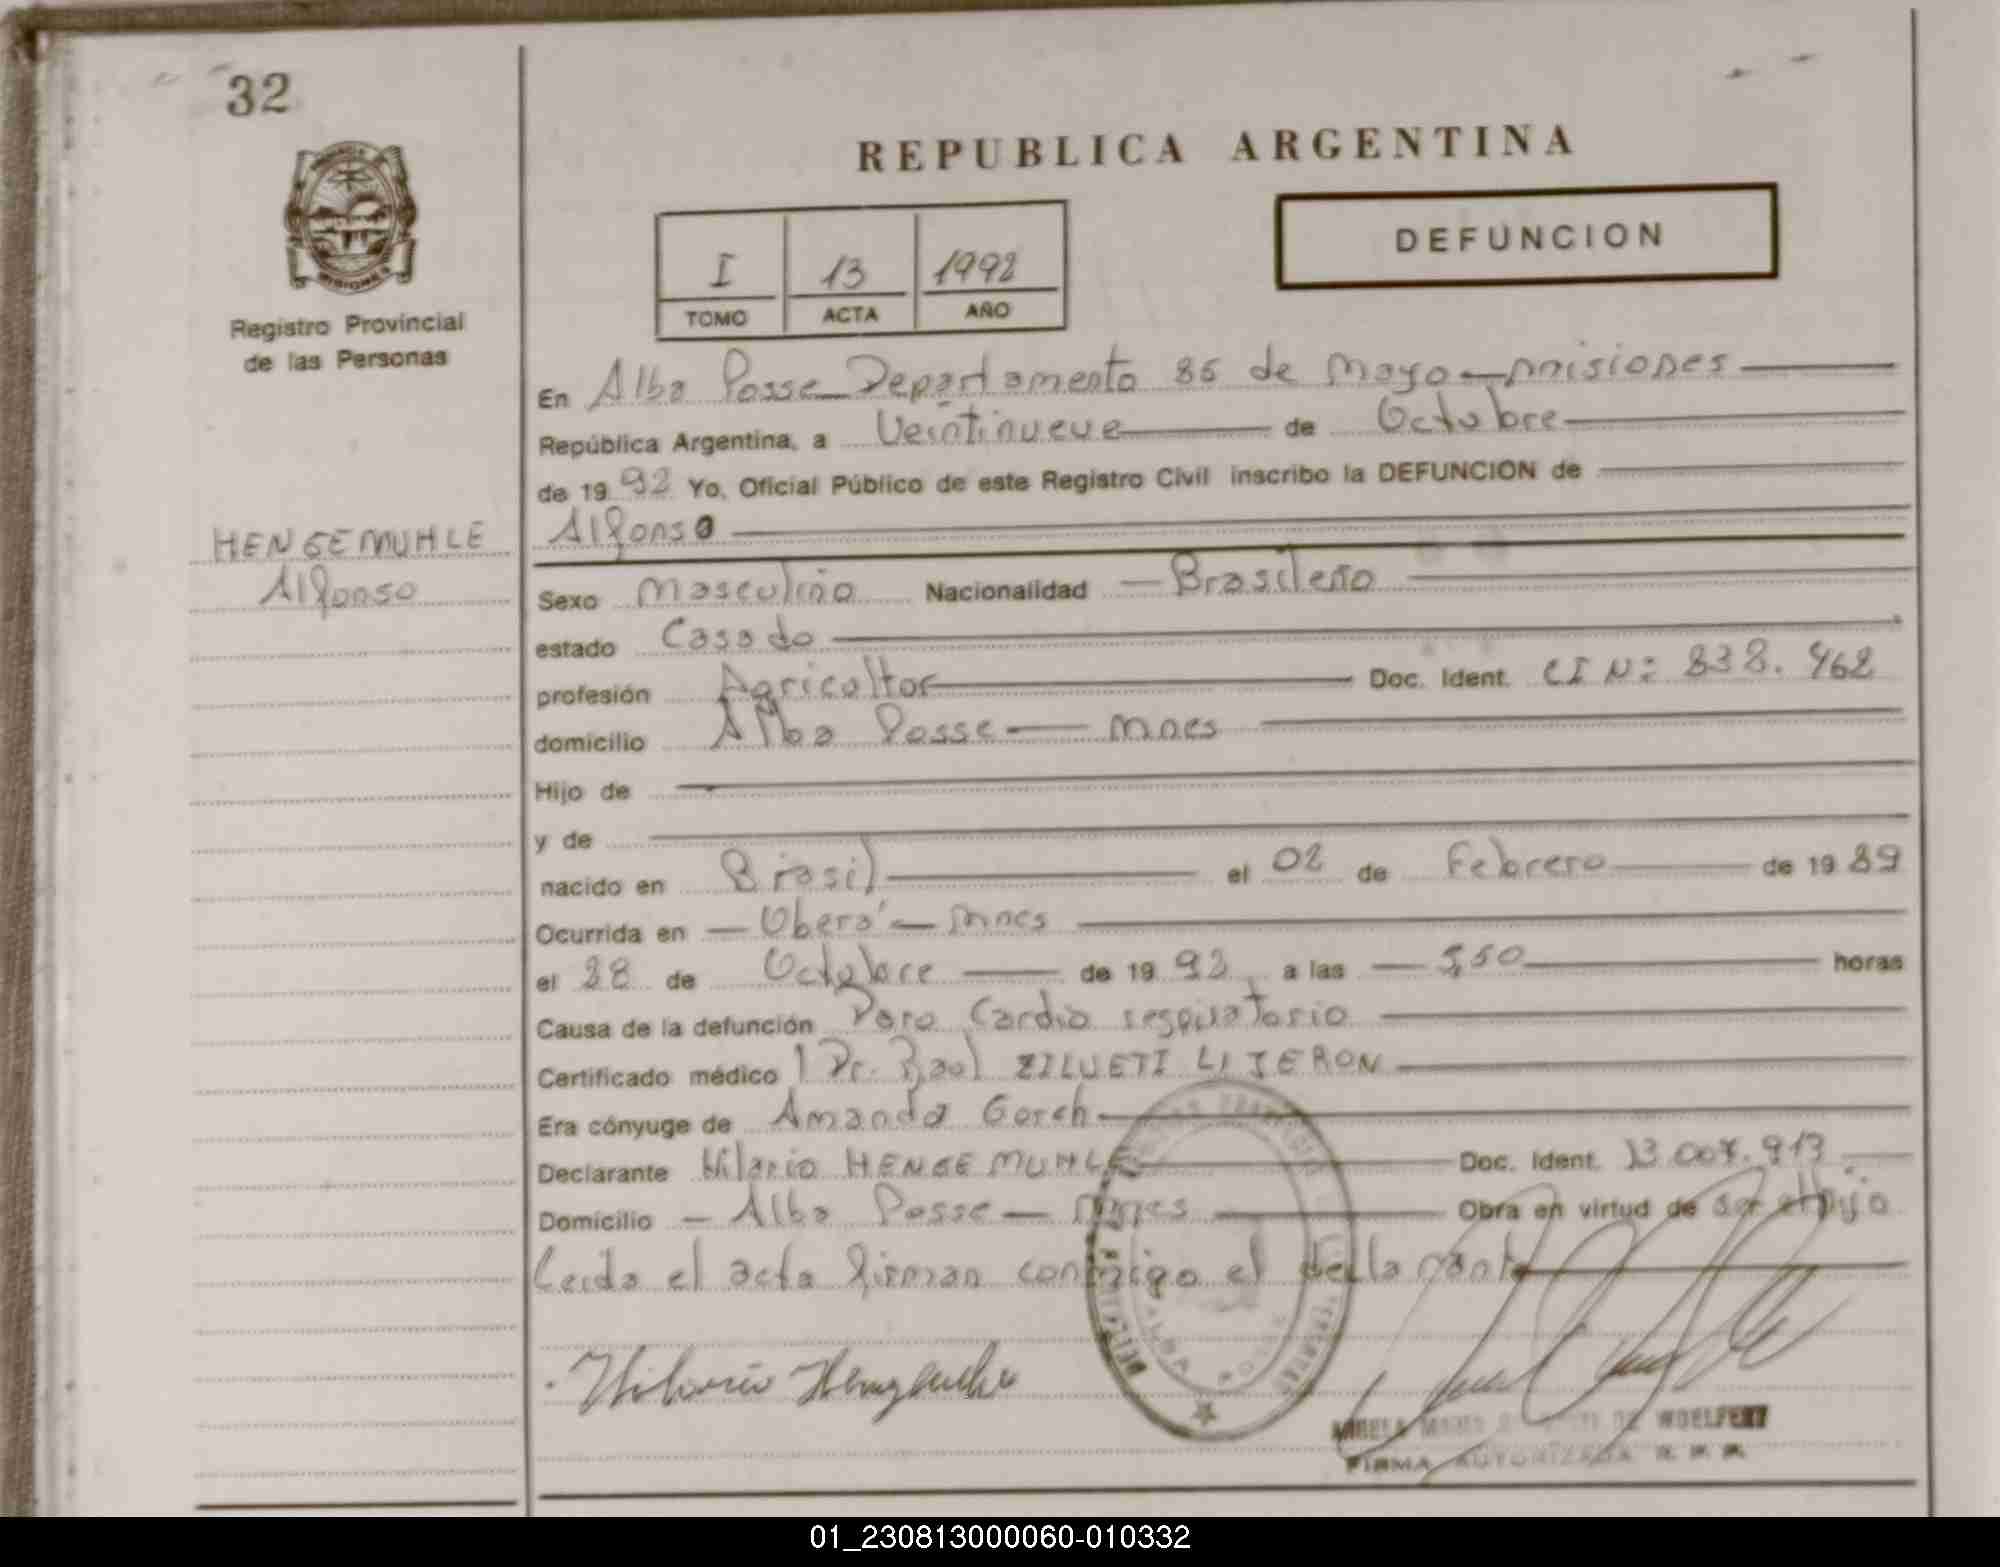 32
REPUBLICA ARGENTINA
MISIONES
I 13 1992
TOMO ACTA AÑO
DEFUNCION
Registro Provincial
de las Personas
HENGEMUHLE
Alfonso
En Alba Posse Departamento 25 de Mayo misiones
República Argentina, a Veintinueve de Octubre
de 1992 Yo, Oficial Público de este Registro Civil inscribo la DEFUNCION de
Alfonso
Sexo masculino Nacionalidad Brasileño
estado Casado
profesión Agricultor Doc. Ident. CI Nº 838.462
domicilio Alba Posse mnes
Hijo de
y de
nacido en Brasil el 02 de Febrero de 19
Ocurrida en Oberá mnes
el 28 de Octubre de 1992 a las 5,50 horas
Causa de la defunción Paro Cardio respiratorio
Certificado médico Dr. Raul ZILVETI LIJERON
Era cónyuge de Amanda Gorch
Declarante Hilario HENGEMUHLE Doc. Ident. 13.007.913
Domicilio Alba Posse mnes Obra en virtud de ser el hijo
Leida el acta firman conmigo el declarante
Hilario
ALBA POSSE
DE WOELFERT
FIRMA AUTORIZADA
01_230813000060-010332